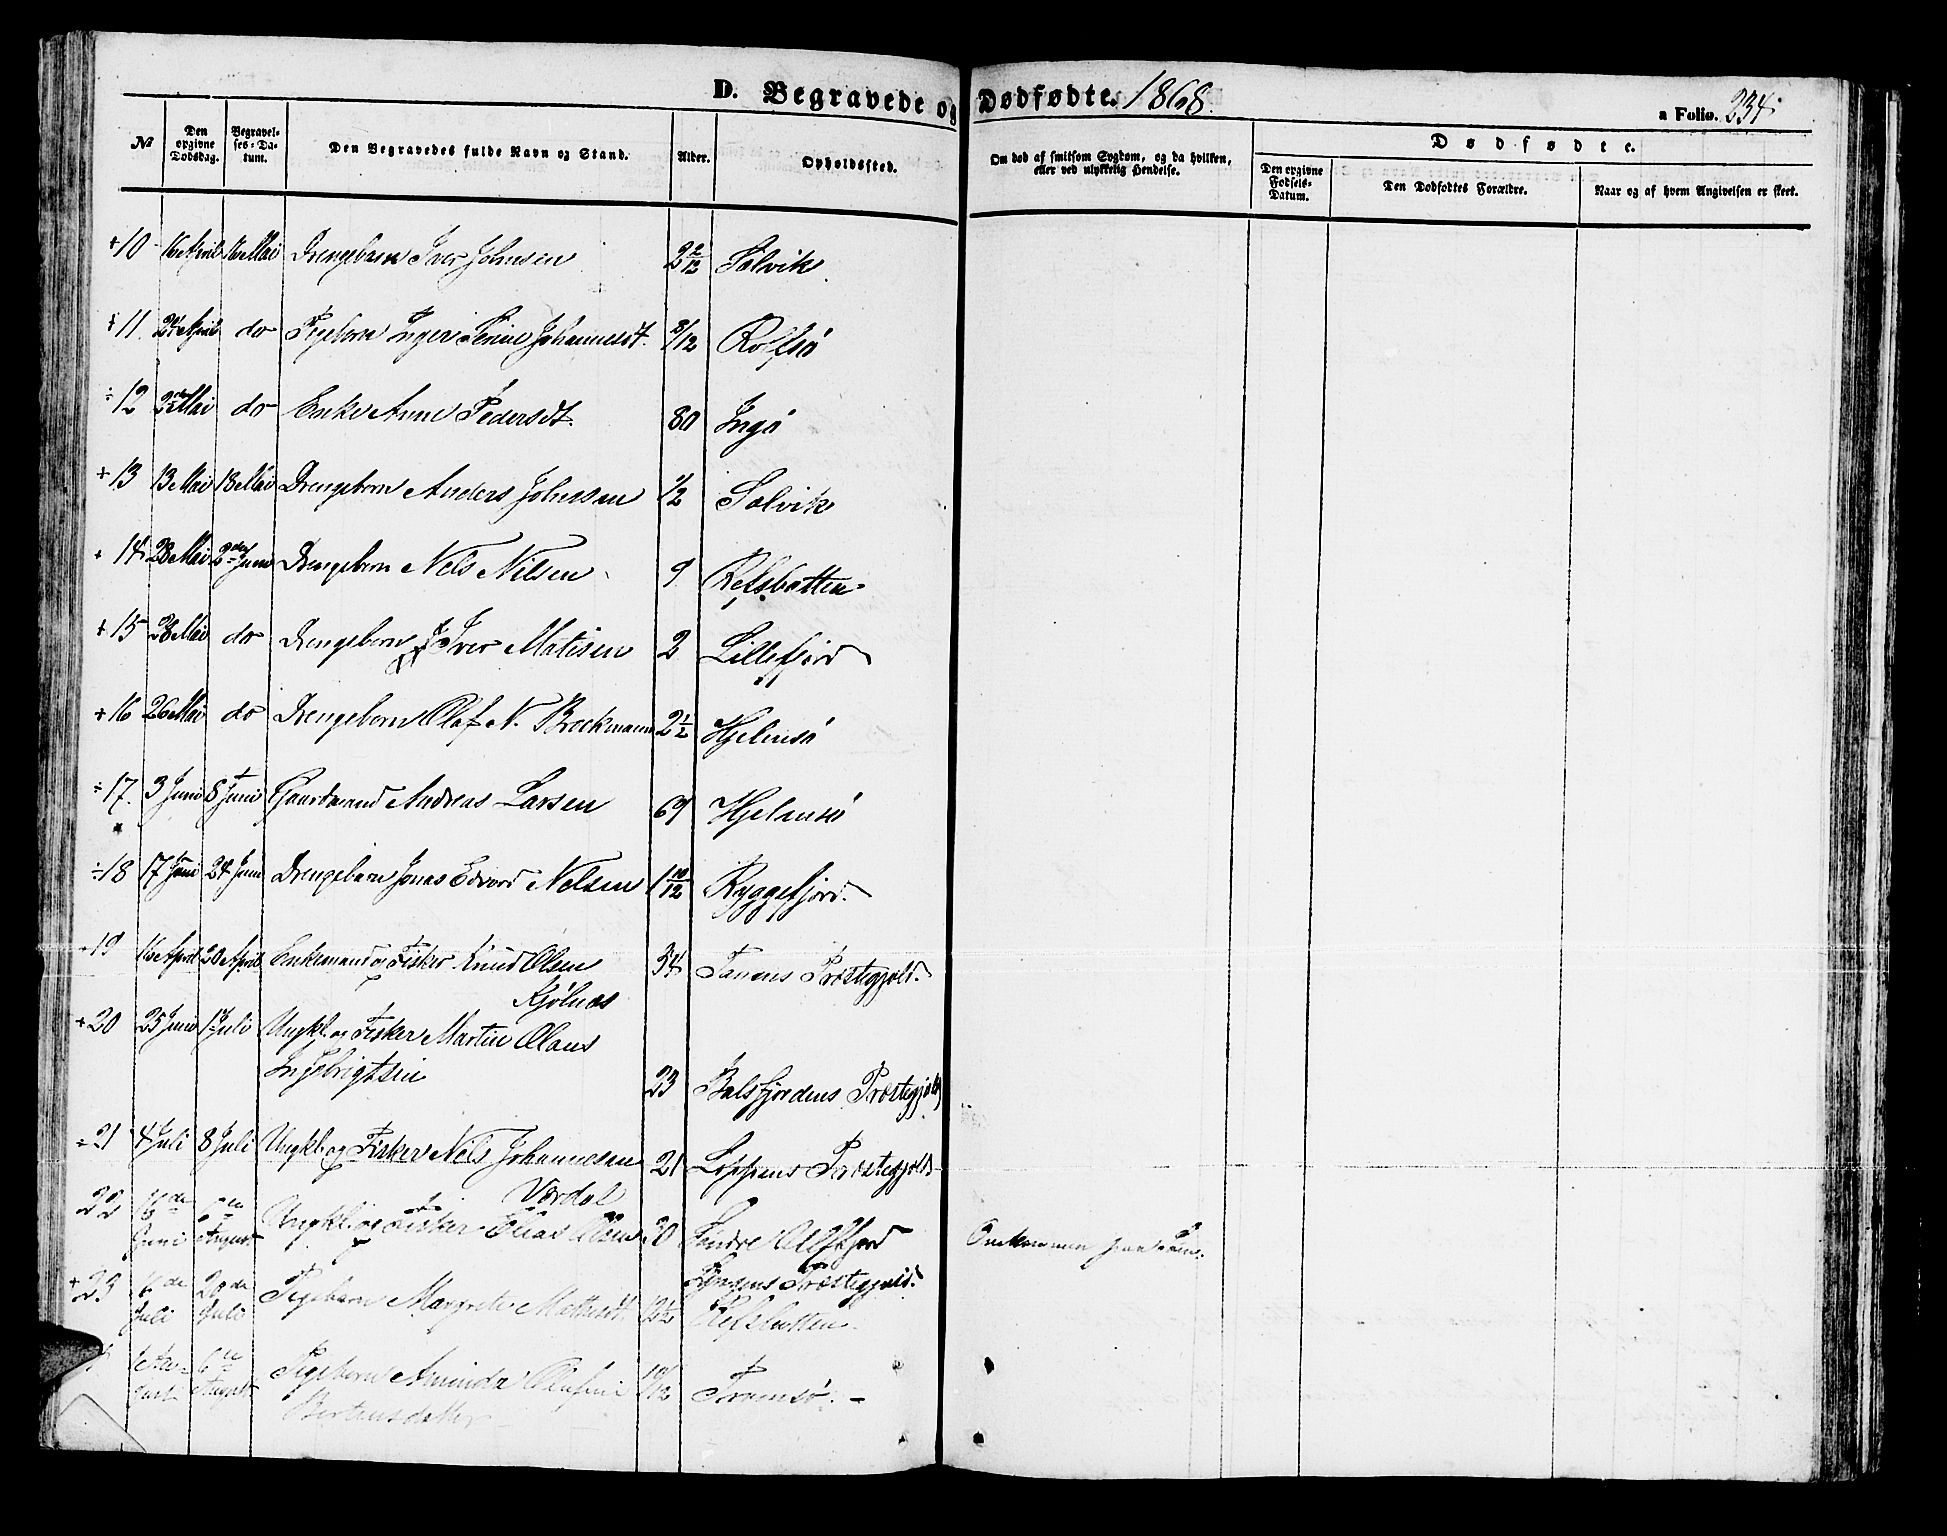 D. Begravede og Dødfødte. 1868. a Folio. 234.
No
Den opgivne Dødsdag.
Begravelses-Datum.
Den Begravedes fulde Navn og Stand.
Alder.
Opholdssted.
Om død af smitsom Sygdom, og da hvilken, eller ved ulykkelig Hendelse.
Dødfødte.
Den opgivne Fødsels-Datum.
Den Dødfødtes Forældre.
Naar og af hvem Angivelsen er skeet.
+10 16 April 16 Mai Drengebarn Iver Johnsen 2 2/12 Selvik.
÷11. 24 April do Pigebarn Inger Serine Johannesdt. 8/12 Rolfsø
÷12 2den Mai do Enke Anne Pedersdt. 80 Ingø
+13 13 Mai 18 Mai Drengebarn Anders Johnssen 1/2 Selvik
+14 28 Mai 2den Juni Drengebarn Nels Nilsen 9 Refsbotten
+15 28 Mai do Drengebarn Iver Matisen 2 Lillefjord
+16 26 Mai do Drengebarn Olaf N. Brockmann 2 1/2 Hjelmsø
÷17. 3 Juni 8 Juni Gaardmand Andreas Larsen 69 Hjelmsø
÷18 17 Juni 24 Juni Drengebarn Jonas Edvard Nelsen 1 10/12 Ryggefjord.
19 16 April 20 April Enkemand og Fisker Knud Olsen 54 Tanens Præstegjeld.
Kjølnæs
+20 25 Juni 1 Juli Ungkl. og Fisker Martin Olaus
Ingebrigtsen 23 Balsfjordens Præstegjeld
÷21 4 Juli 8 Juli Ungkl. og Fisker Nels Johannesen 21 Loppens Præstegjeld
Værdal
22 16de Juni 6te August Ungkl. og Fisker Elias Olsen 30 Søndre Olderfjord
Lyngens Præstegjeld.
Omkommen paa Søen.
+23 16de Juli 20de Juli Pigebarn Margrete Mathisdt. 12 1/2 Refsbotten.
August 6te August Pigebarn Aminda Olufine 10/12 Tromsø. –
Bertensdatter